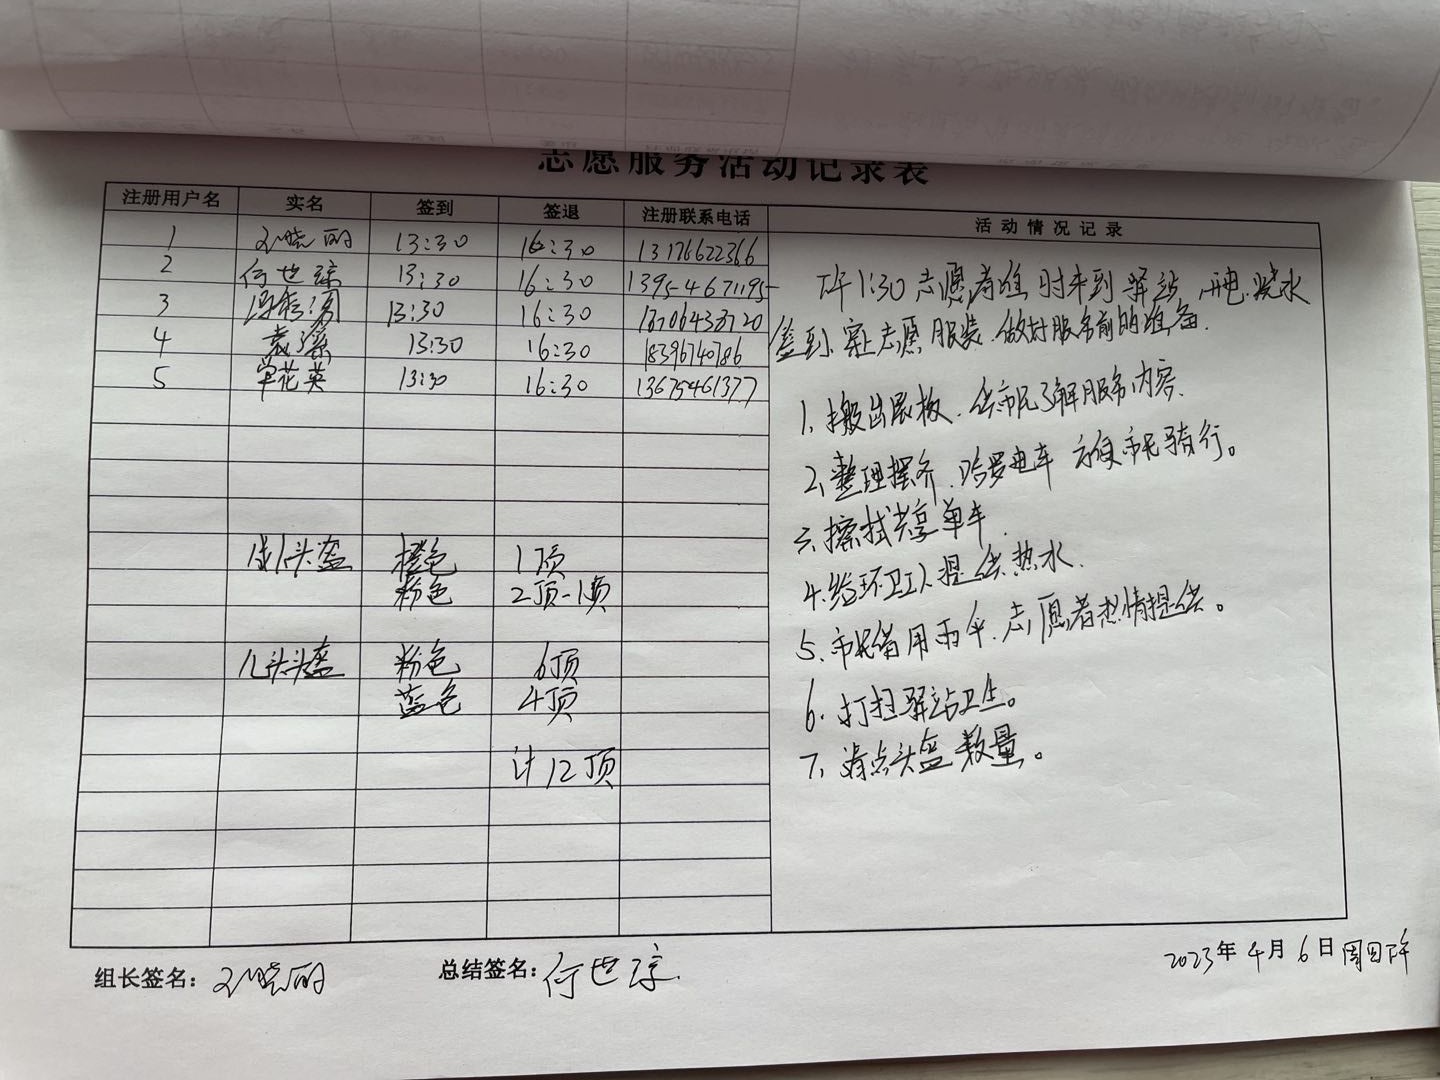 志愿服务活动记录表
注册用户名 实名 签到 签退 注册联系电话 活动情况记录
1 晓丽 13:30 16:30 13176622366
2 何世琼 13:30 16:30 13954671195
3 13:30 16:30
4 袁 13:30 16:30 18396740786
5 花英 13:30 16:30 13675461377
下午1:30志愿者准时来到驿站,开电.烧水
签到.穿上志愿服装.做好服务前的准备.
1、搬出展板.供市民了解服务内容.
2、整理摆齐.哈罗电车 方便市民骑行。
3、擦拭共享单车.
4.给环卫工人提供热水.
5、市民借用雨伞.志愿者热情提供。
6.打扫驿站卫生。
7、清点头盔数量。
成人头盔 橙色 1顶
粉色 2顶-1顶
儿头头盔 粉色 6顶
蓝色 4顶
计12顶
组长签名: 晓丽 总结签名:何世琼.
2023年4月6日周四下午